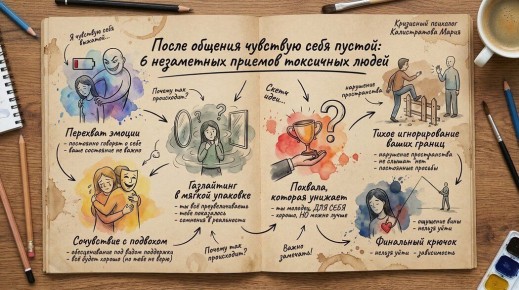 Я чувствую себя
выжатой...
После общения чувствую себя пустой:
6 незаметных приемов токсичных людей
Кризисный психолог
Калистратова Мария
Почему так
происходит?
Перехват эмоции
- постоянно говорят о себе
ваше состояние не важно
Газлайтинг
в мягкой упаковке
- ты всё преувеличиваешь
- тебе показалось
- сомнения в реальности
Сочувствие с подвохом
- обесценивание под видом поддержки
- всё будет хорошо (но тебе не верю)
Почему так
происходит?
Скетч
идеи...
Похвала,
которая унижает
- ты молодец, ДЛЯ СЕБЯ
- хорошо, НО можно лучше
Важно
замечать!
нарушение
пространства
Тихое игнорирование
ваших границ
- нарушение пространства
- не слышат "нет"
- постоянные просьбы
- ощущение вины
- нельзя уйти
Финальный крючок
- нельзя уйти - зависимость